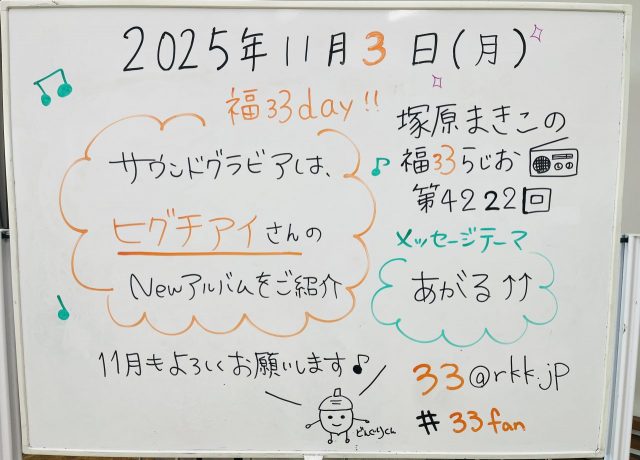 2025年11月3日(月)
福33day!!
サウンドグラビアは、
ヒグチアイさんの
Newアルバムをご紹介
塚原まきこの
福33らじお
第4222回
メッセージテーマ
あがる↑↑
11月もよろしくお願いします♪
どんぐりくん
33@rkk.jp
#33fan